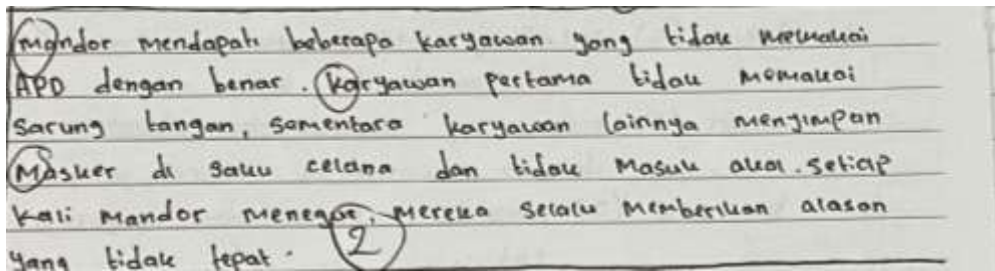 Mandor mendapati beberapa karyawan yang tidak memakai
APD dengan benar. Karyawan pertama tidak memakai
Sarung tangan, sementara karyawan lainnya menyimpan
Masker di saku celana dan tidak Masuk akal. Setiap
Kali Mandor menegur, Mereka Selalu Memberikan alasan
yang tidak tepat.
2